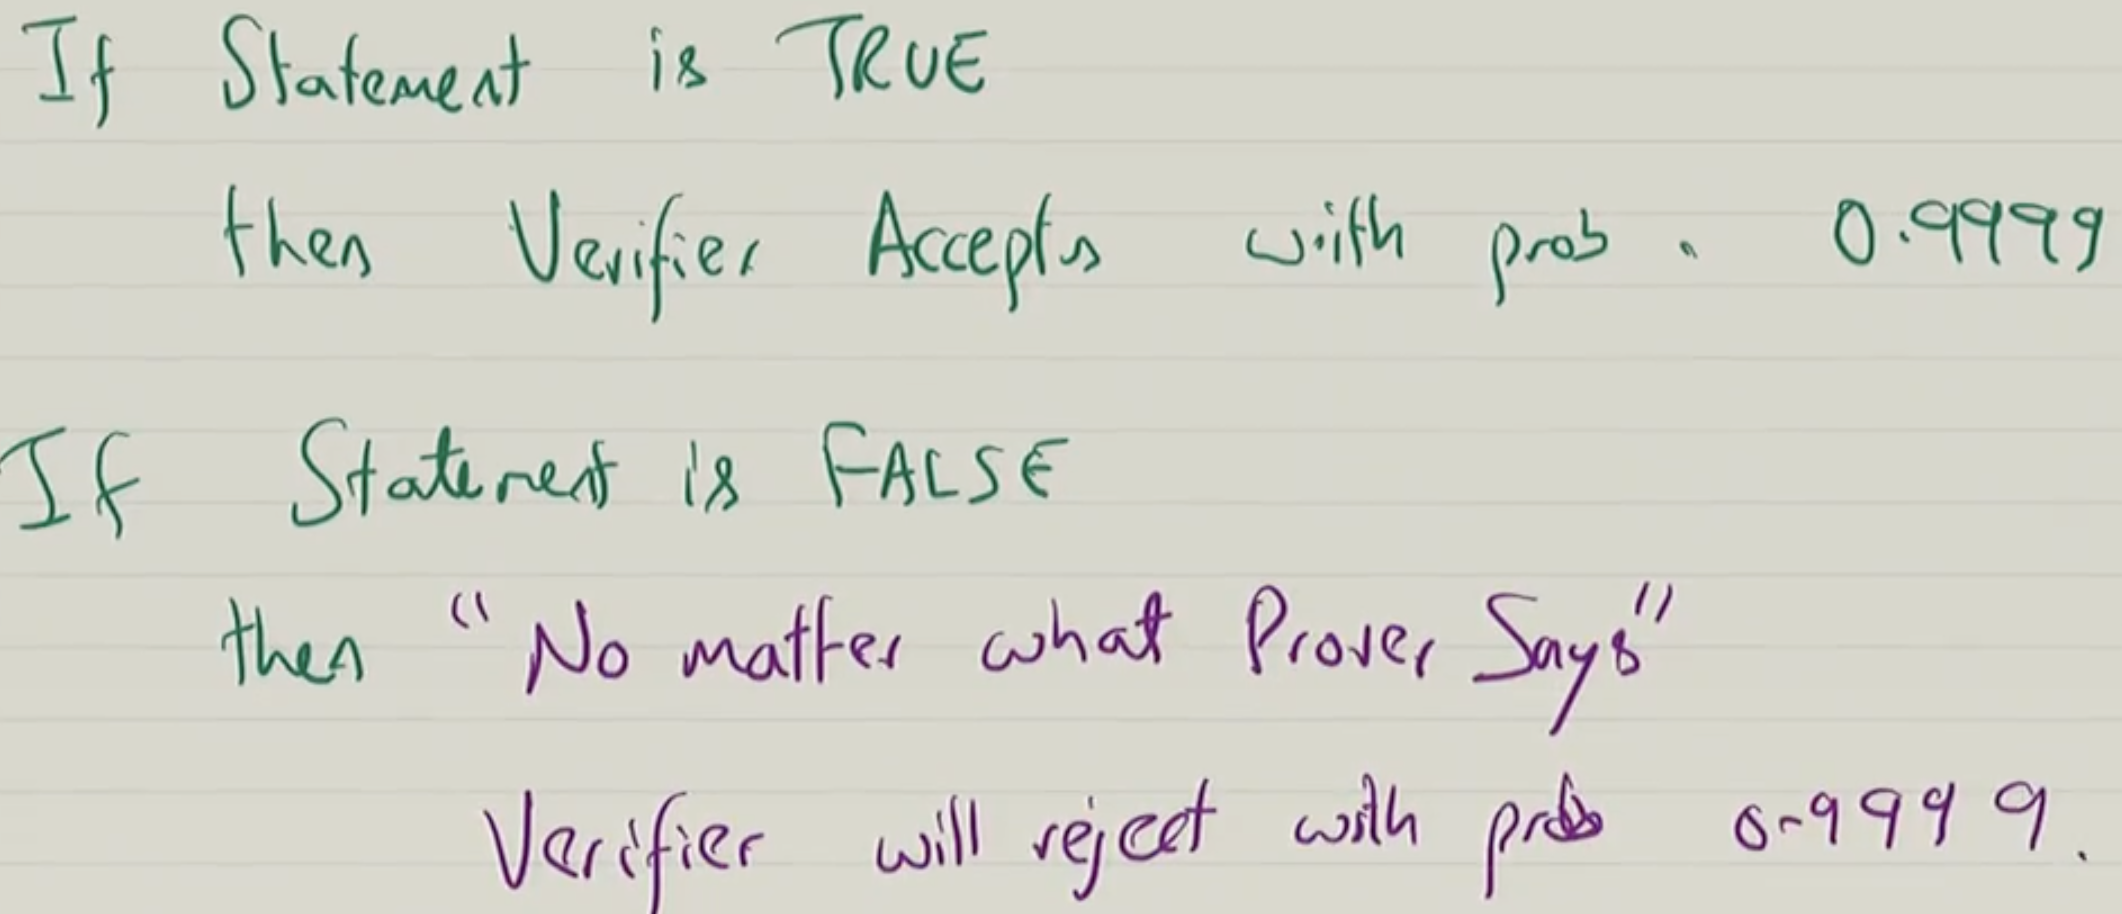 If Statement is TRUE
then Verifier Accepts with prob. 0.9999
If Statement is FALSE
then "No matter what Prover Says"
Verifier will reject with prob 0.9999.